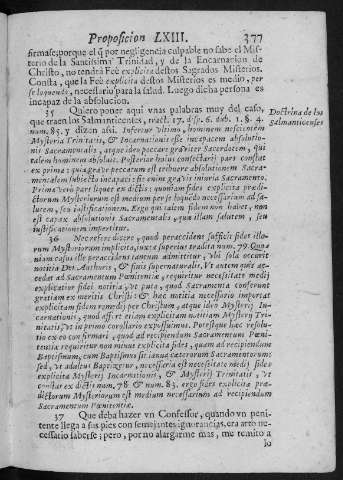 Proposicion LXIII. 377
firmase; porque el q̃ por negligencia culpable no sabe el Mis-
terio de la Santissima Trinidad, y de la Encarnacion de
Christo, no tendrà Feè explicita destos Sagrados Misterios.
Consta, que la Feè explicita destos Misterios es medio, per
se loquendo, necessario para la salud. Luego dicha persona es
incapaz de la absolucion.
35 Quiero poner aqui unas palabras muy del caso,
que traen los Salmanticenses, tract. 17. disp. 6. dub. 1. §. 4.
num. 85. y dizen assi. Infertur vltimo, hominem nescientem
Mysteria Trinitatis, & Incarnationis esse incapacem absolutio-
nis Sacramentalis, atque ideo peccare gravitèr Sacerdotem, qui
talem hominem absolvit. Posterior huius consectarij pars constat
ex prima: quia grave peccatum est tribuere absolutionem Sacra-
mentalem subiecto incapaci: sic enim gravis iniuria Sacramento.
Prima verò pars liquet ex dictis: quoniam fides explicita præ-
dictorum Mysteriorum est medium per se loquẽdo necessarium ad sa-
lutem, seu iustificationem. Ergo qui talem fidem non habet, non
est capax absolutionis Sacramentalis, qua illam salutem, seu
iustificationem impertitur.
36 Nec refert dicere, quod peraccidens sufficit fides illo-
rum Mysteriorum implicita, iuxta superius tradita num. 79. Quo-
niam casus ille peraccidens tantum admittitur, vbi sola occurit
notitia Dei Authoris, & finis supernaturalis. Vt autem quis ac-
cedat ad Sacramentum Pœnitentiæ, requiritur necessitate medij
explicativè fidei notitia, vt puta, quod Sacramenta conferunt
gratiam ex meritis Christi: & hæc notitia necessariò importat
explicitam fidem remedij per Christum, atque ideo Mysterij In-
carnationis, quod affert etiam explicitam notitiam Mysterij Tri-
nitatis, vt in primo corollario expossuimus. Potestque hæc resolu-
tio ex eo confirmari, quod ad recipiendum Sacramentum Pœni-
tentiæ requiritur non minus explicita fides, quam ad recipiendum
Baptismum, cum Baptismus sit ianua cæterorum Sacramentorum:
sed, vt adultus Baptizetur, necessaria est necessitate medij fides
explicita Mysterij Incarnationis, & Mysterij Trinitatis, vt
constat ex dictis num. 78. & num. 83. ergo fides explicita præ-
dictorum Mysteriorum est medium necessarium ad recipiendum
Sacramentum Pœnitentiæ.
37 Que deba hazer vn Confessor, quando vn peni-
tente llega a sus pies con semejantes ignorancias, era arto ne-
cessario saberse; pero, por no alargarme mas, me remito a
lo
Doctrina de los
Salmanticenses